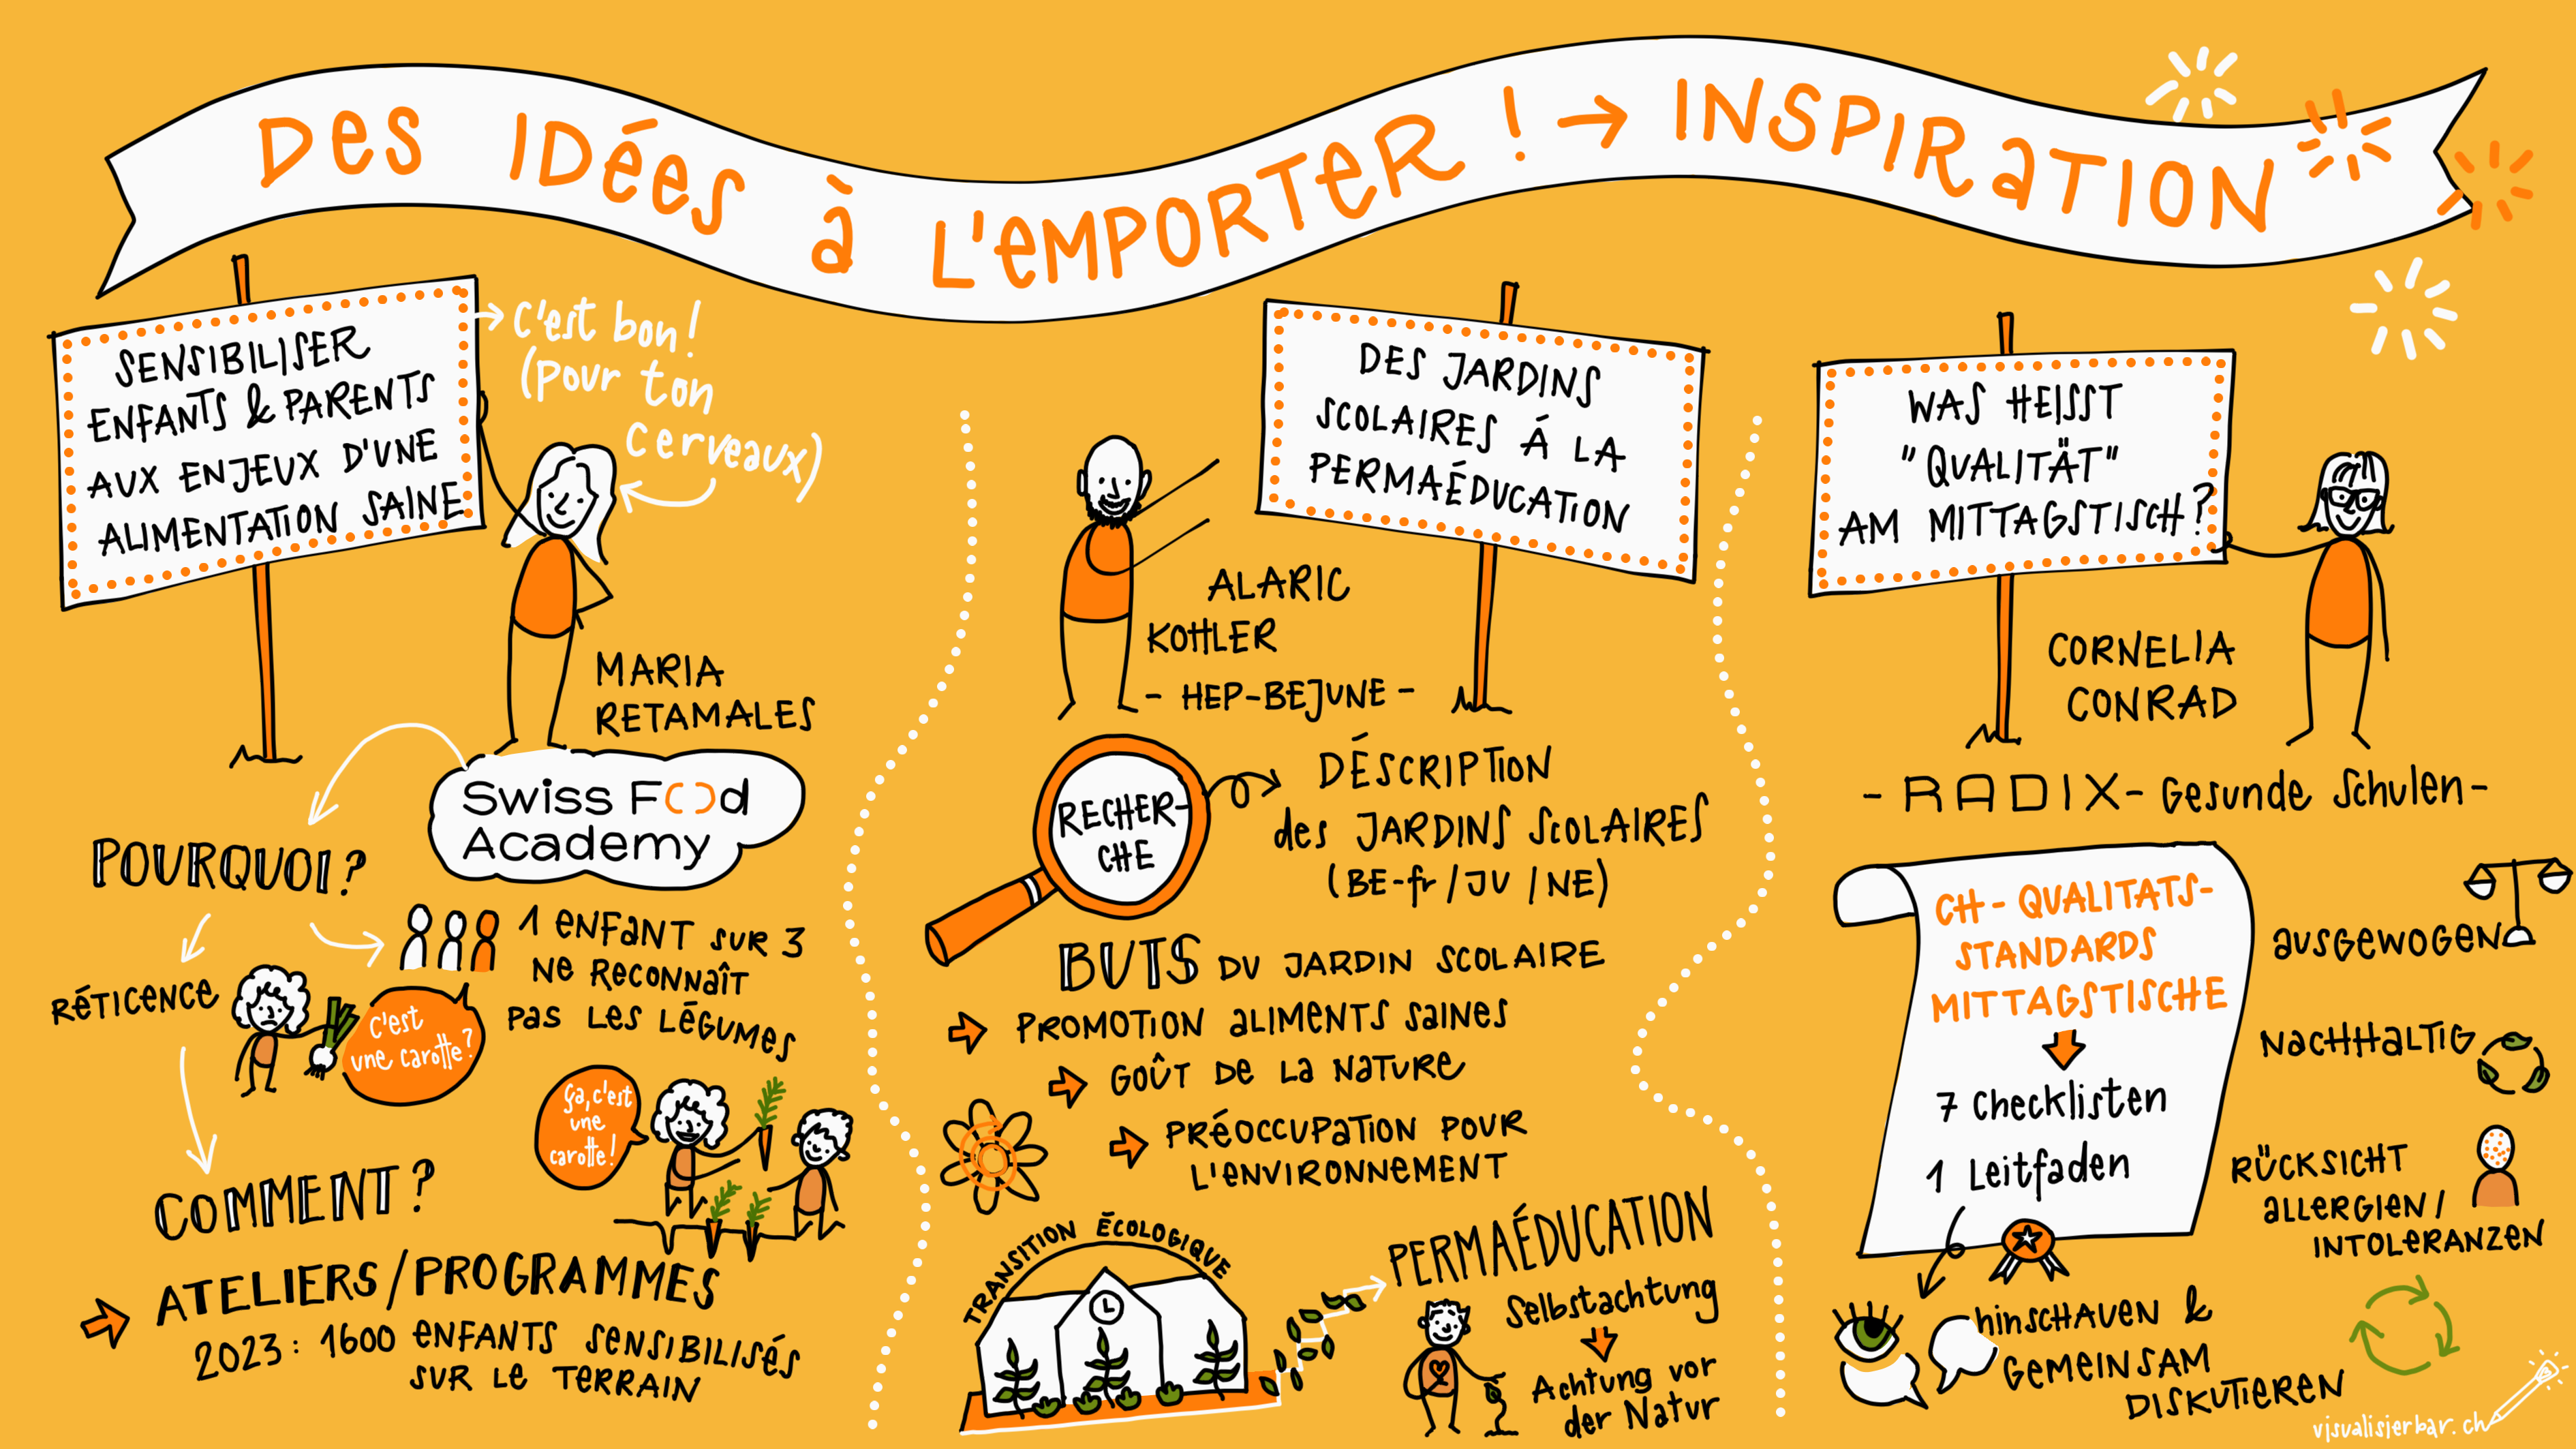 Des Idées à L'emporter ! → Inspiration
SENSIBILISER
ENFANTS & PARENTS
AUX ENJEUX D'UNE
ALIMENTATION SAINE
→ C'est bon!
(pour ton
cerveaux)
MARIA
RETAMALES
Swiss Food
Academy
POURQUOI?
RÉTICENCE
C'est
une carotte?
1 ENFANT SUR 3
NE RECONNAÎT
PAS LES LÉGUMES
Ça, c'est
une
carotte!
COMMENT?
ATELIERS/PROGRAMMES
2023: 1600 ENFANTS SENSIBILISÉS
SUR LE TERRAIN
DES JARDINS
SCOLAIRES Á LA
PERMAÉDUCATION
ALARIC
KOHLER
- HEP-BEJUNE -
RECHER-
CHE
DÉSCRIPTION
des JARDINS SCOLAIRES
(BE-fr/JU/NE)
BUTS DU JARDIN SCOLAIRE
PROMOTION ALIMENTS SAINES
GOÛT DE LA NATURE
PRÉOCCUPATION POUR
L'ENVIRONNEMENT
TRANSITION ÉCOLOGIQUE
PERMAÉDUCATION
Selbstachtung
Achtung vor
der Natur
WAS HEISST
"QUALITÄT"
AM MITTAGSTISCH?
CORNELIA
CONRAD
- RADIX - Gesunde Schulen -
CH-QUALITATS-
STANDARDS
MITTAGSTISCHE
7 Checklisten
1 Leitfaden
AUSGEWOGEN
NACHHALTIG
RÜCKSICHT
ALLERGIEN/
INTOLERANZEN
hinschauen &
GEMEINSAM
DISKUTIEREN
visualisierbar.ch